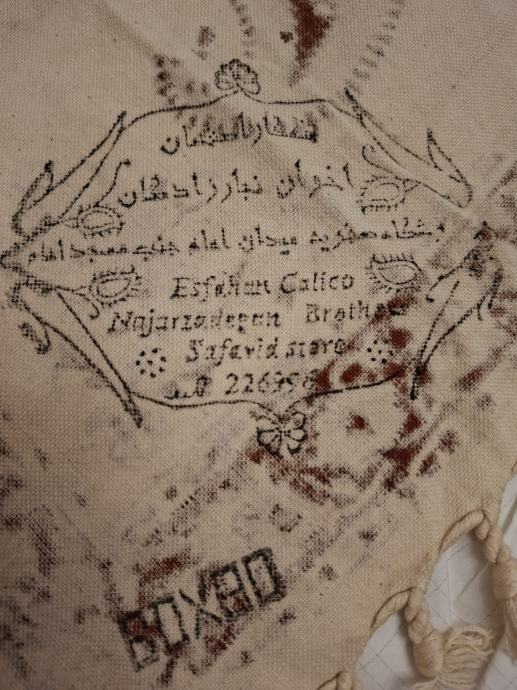 قلمکار اصفهان
اخوان نجارزادگان
فروشگاه صفویه میدان امام جنب مسجد امام
Esfahan Calico
Najarzadegan Brothers
Safavid store
80X80